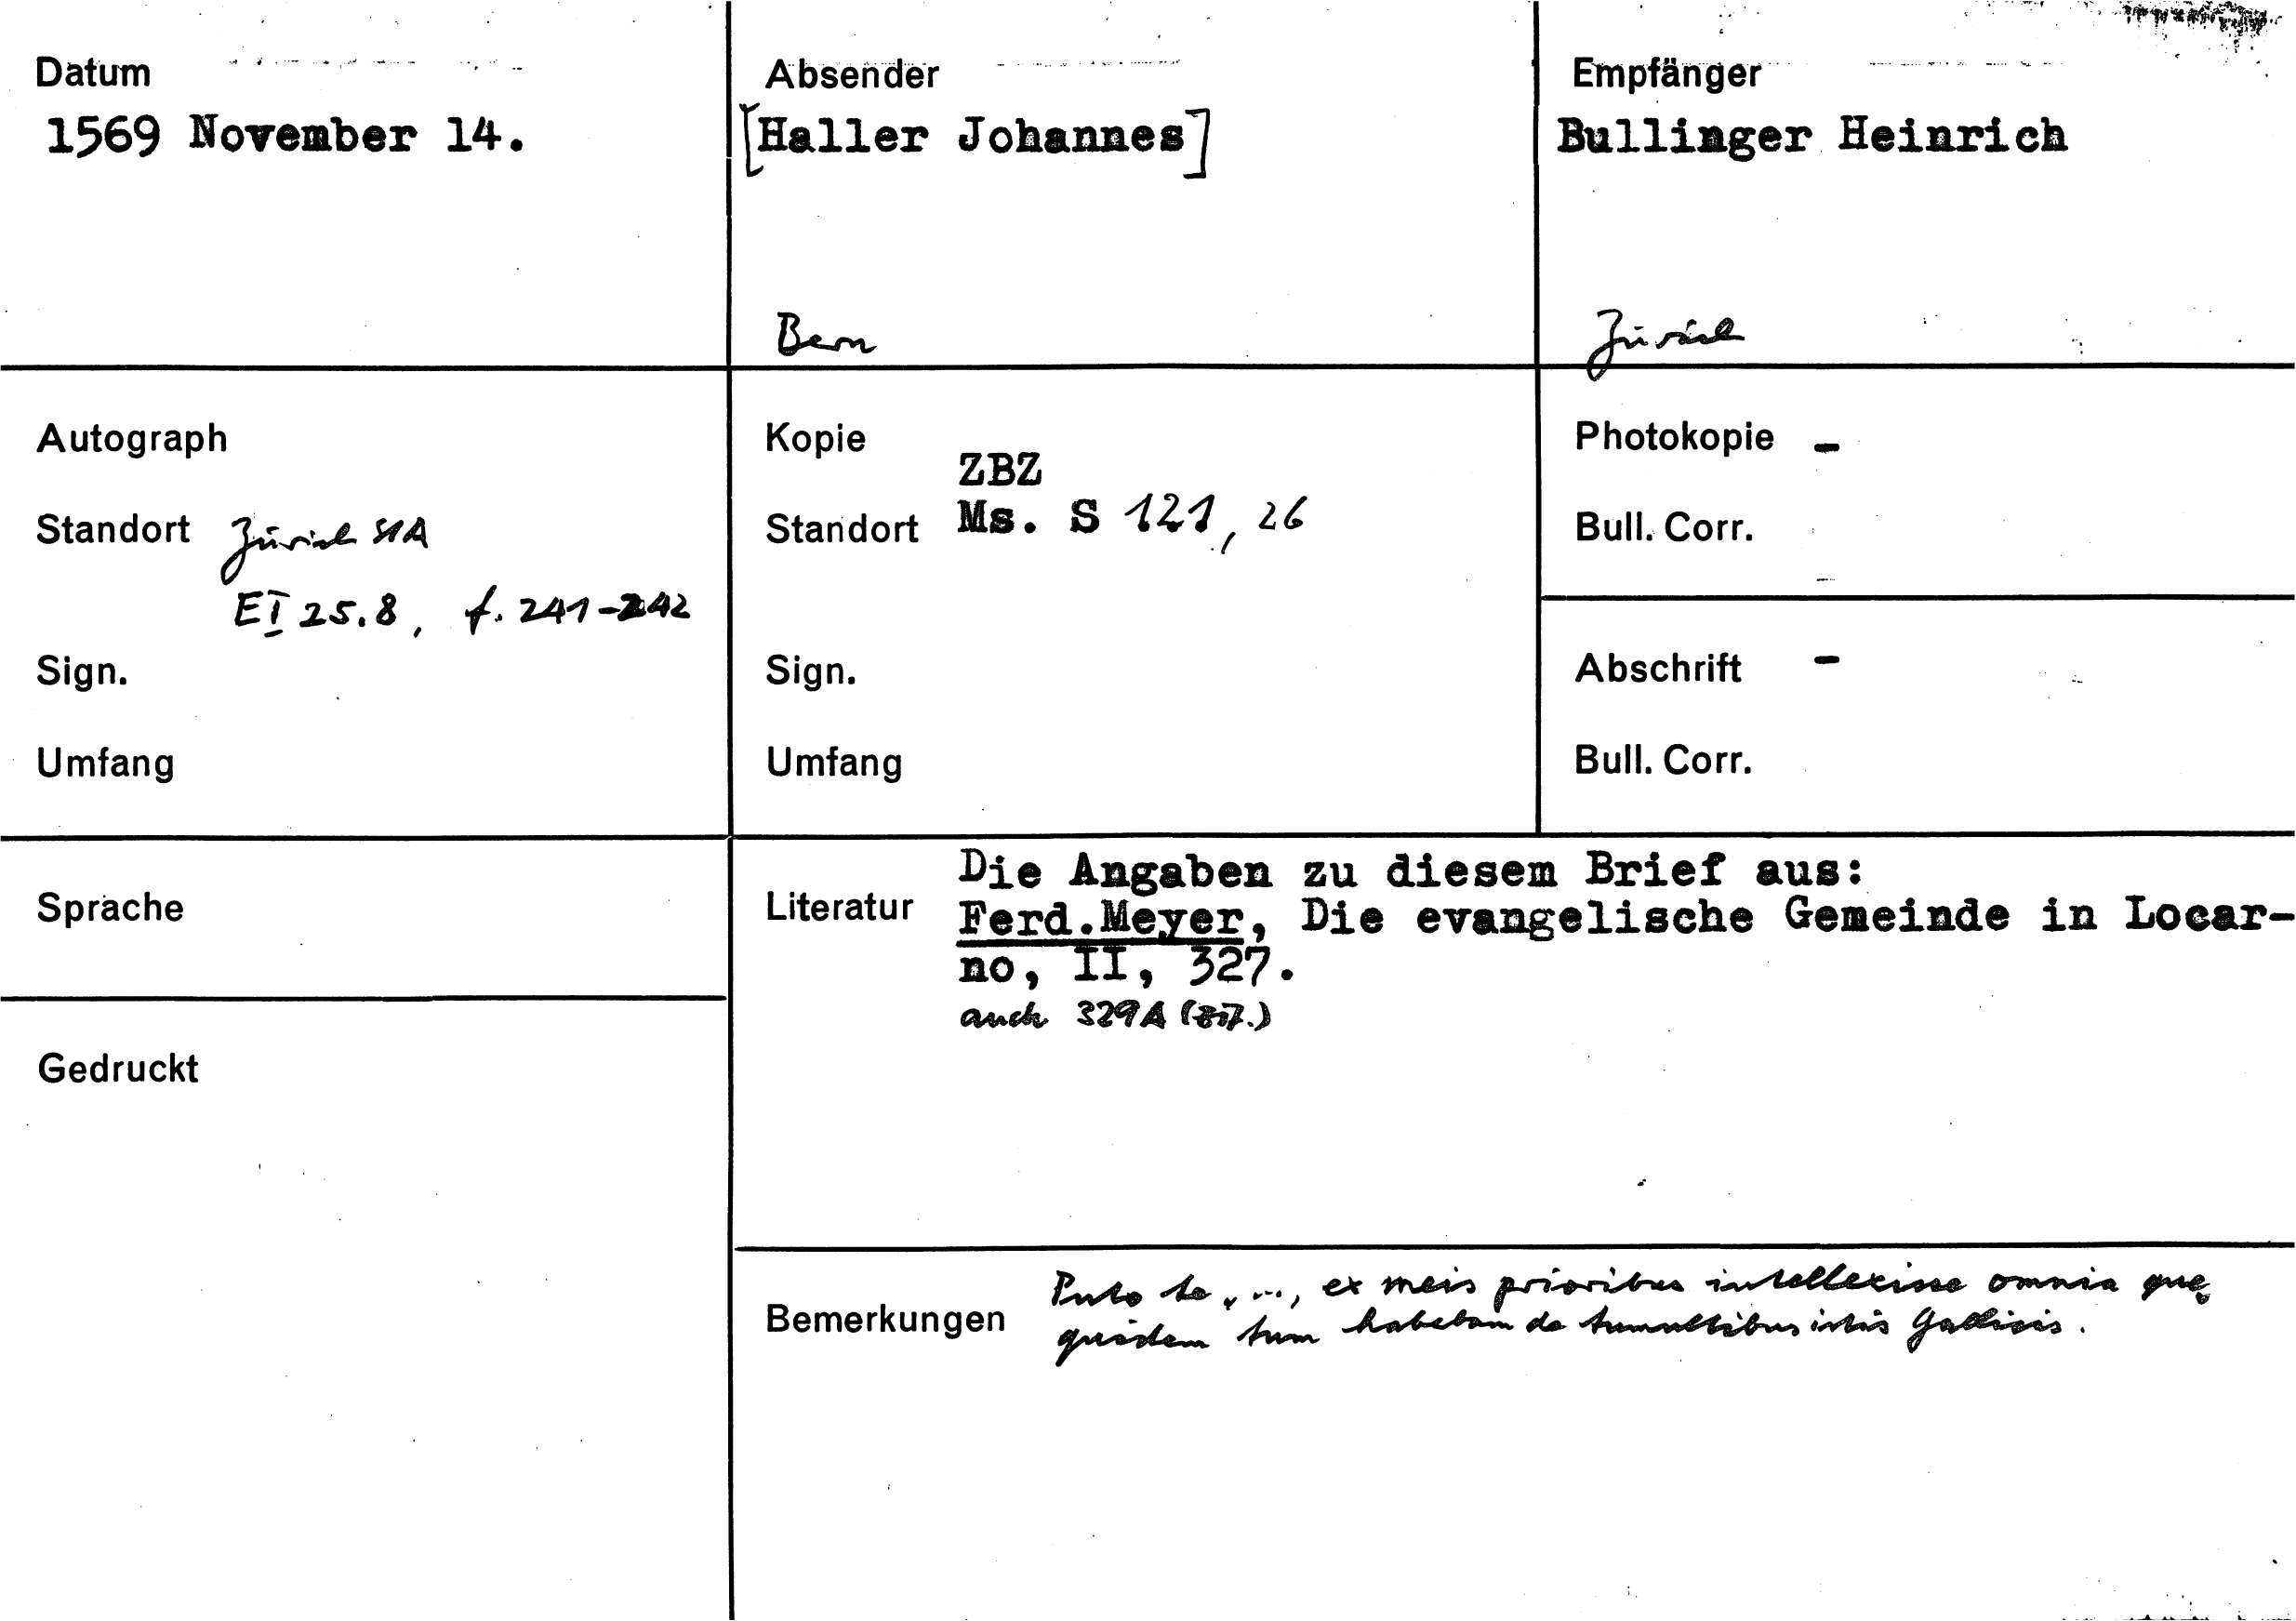 Datum
1569 November 14.
Absender
[Haller Johannes]
Bern
Empfänger
Bullinger Heinrich
Zürich
Autograph
Standort Zürich StA
E I 25.8, f. 241-242
Sign.
Umfang
Kopie
ZBZ
Standort Ms. S 121, 26
Sign.
Umfang
Photokopie -
Bull. Corr.
Abschrift -
Bull. Corr.
Sprache
Gedruckt
Literatur
Die Angaben zu diesem Brief aus:
Ferd.Meyer, Die evangelische Gemeinde in Locar-
no, II, 327.
auch 329A
Bemerkungen
Puto te, ..., ex meis prioribus intellexisse omnia quę
quidem tum habebam de tumultibus istis Gallicis.